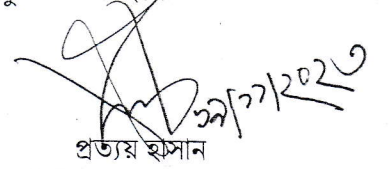 ২৯/১১/২০২৩
প্রত্যয় হাসান